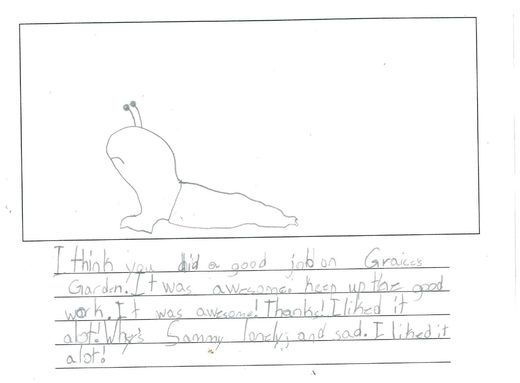 I think you did a good job on Graices
Garden! It was awesome. keep up the good
work. It was awesome! Thanks! I liked it
alot! Why's Sammy lonely; and sad. I liked it
alot!